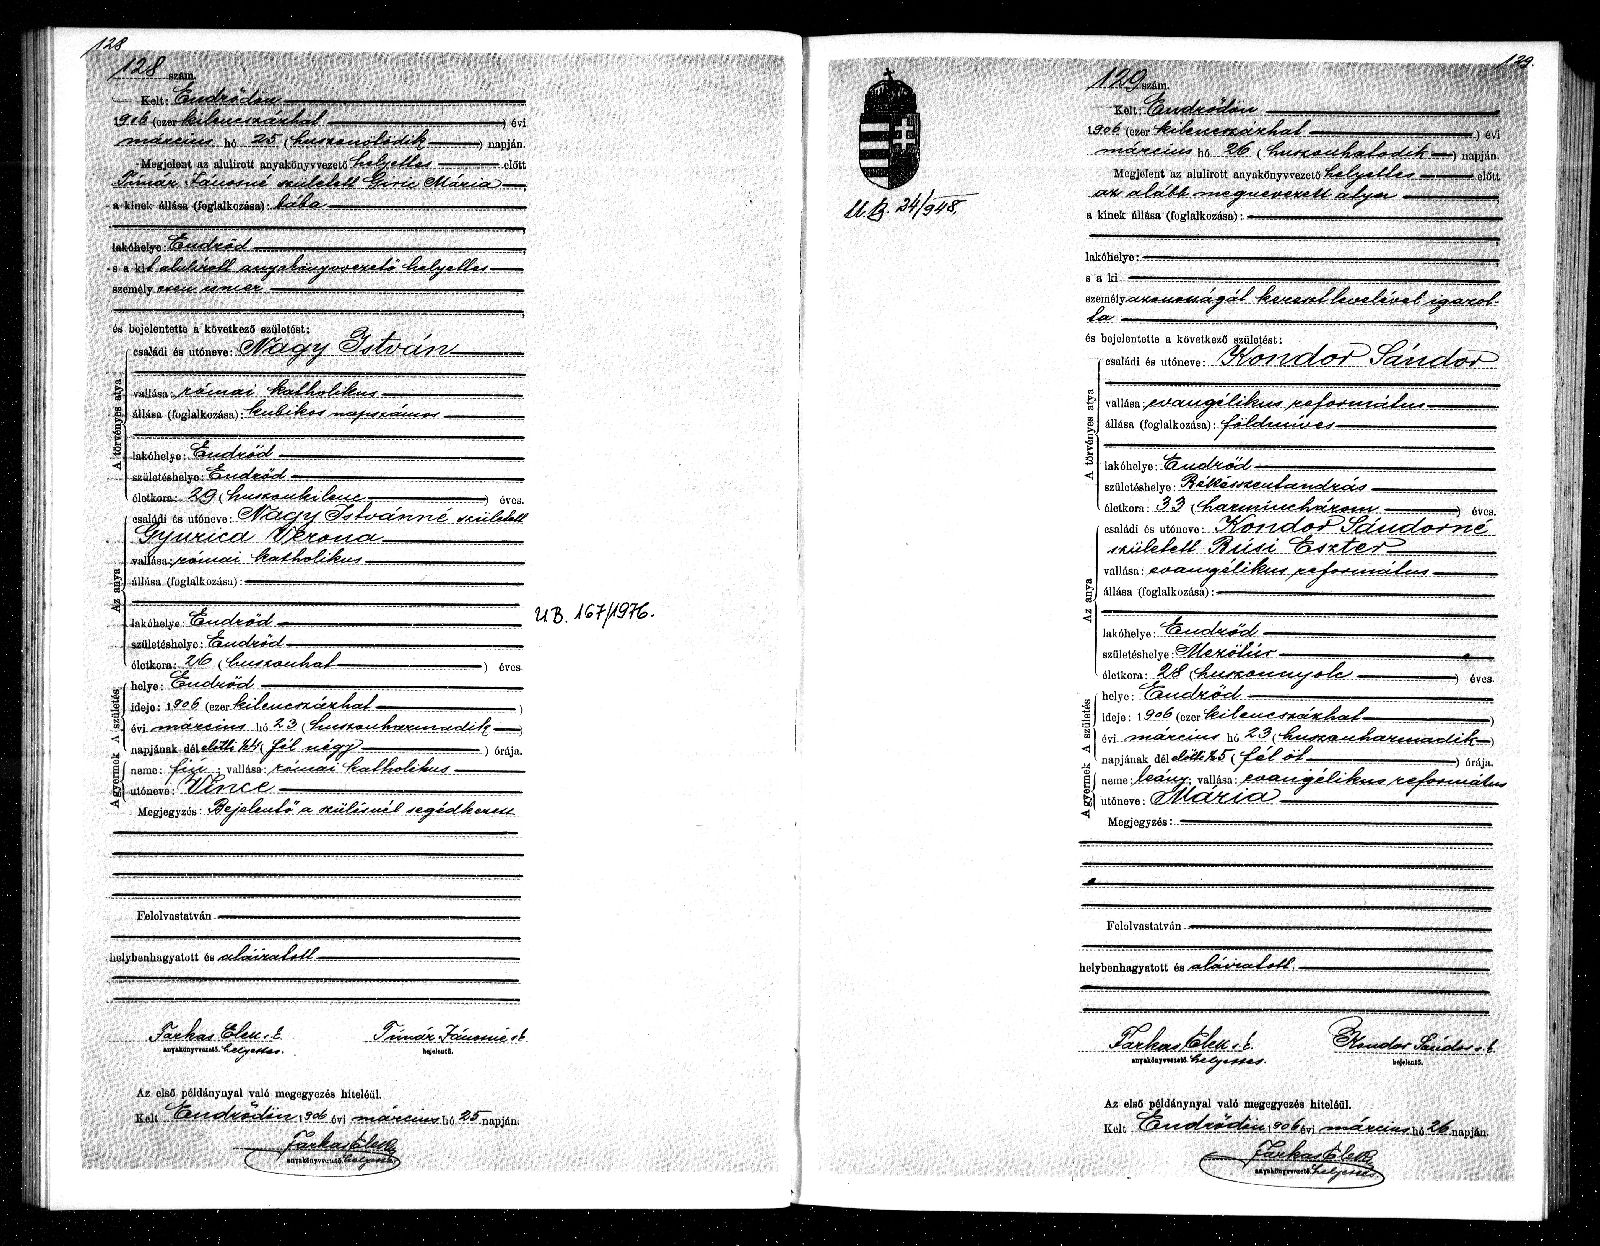 128
128 szám.
Kelt: Endrődön
1906 (ezer kilencszázhat) évi
március hó 25 (huszonötödik) napján.
Megjelent az alulirott anyakönyvvezető helyettes előtt
Timár Jánosné született Giriu Mária
a kinek állása (foglalkozása): bába
lakóhelye: Endrőd
s a kit alulírott anyakönyvvezető helyettes
személyesen ismer
és bejelentette a következő születést:
A törvényes atya
családi és utóneve: Nagy István
vallása: római katholikus
állása (foglalkozása): kubikos napszámos
lakóhelye: Endrőd
születéshelye: Endrőd
életkora: 29 (huszonkilenc) éves.
Az anya
családi és utóneve: Nagy Istvánné született
Gyurica Verona
vallása: római katholikus
állása (foglalkozása):
lakóhelye: Endrőd
születéshelye: Endrőd
életkora: 26 (huszonhat) éves
A születés
helye: Endrőd
ideje: 1906 (ezer kilencszázhat)
évi március hó 23 (huszonharmadik)
napjának dél előtti ½4 (fél négy) órája.
A gyermek
neme: fiú; vallása: római katholikus
utóneve: Vince
Megjegyzés: Bejelentő a szülésnél segédkezett
Felolvastatván
helybenhagyatott és aláíratott
Farkas Elek s. k. Timár Jánosné s. k.
anyakönyvvezető. helyettes. bejelentő.
Az első példánynyal való megegyezés hiteléül.
Kelt Endrődön 1906 évi március hó 25 napján.
Farkas Elek
anyakönyvvezető. helyettes
U.B. 167/1976.
129.
129 szám.
U.B. 24/948.
Kelt: Endrődön
1906 (ezer kilencszázhat) évi
március hó 26 (huszonhatodik) napján.
Megjelent az alulirott anyakönyvvezető helyettes előtt
az alább megnevezett atya
a kinek állása (foglalkozása):
lakóhelye:
s a ki
személyazonosságát keresztlevelével igazol-
ta
és bejelentette a következő születést:
A törvényes atya
családi és utóneve: Kondor Sándor
vallása: evangélikus református
állása (foglalkozása): földmíves
lakóhelye: Endrőd
születéshelye: Békésszentandrás
életkora: 33 (harminchárom) éves.
Az anya
családi és utóneve: Kondor Sándorné
született Búsi Eszter
vallása: evangélikus református
állása (foglalkozása):
lakóhelye: Endrőd
születéshelye: Mezőtúr
életkora: 28 (huszonnyolc) éves.
A születés
helye: Endrőd
ideje: 1906 (ezer kilencszázhat)
évi március hó 23 (huszonharmadik)
napjának dél előtti ½5 (fél öt) órája.
A gyermek
neme: leány; vallása: evangélikus református
utóneve: Mária
Megjegyzés:
Felolvastatván
helybenhagyatott és aláíratott.
Farkas Elek s. k. Kondor Sándor s. k.
anyakönyvvezető. helyettes. bejelentő.
Az első példánynyal való megegyezés hiteléül.
Kelt Endrődön 1906 évi március hó 26 napján.
Farkas Elek
anyakönyvvezető. helyettes.